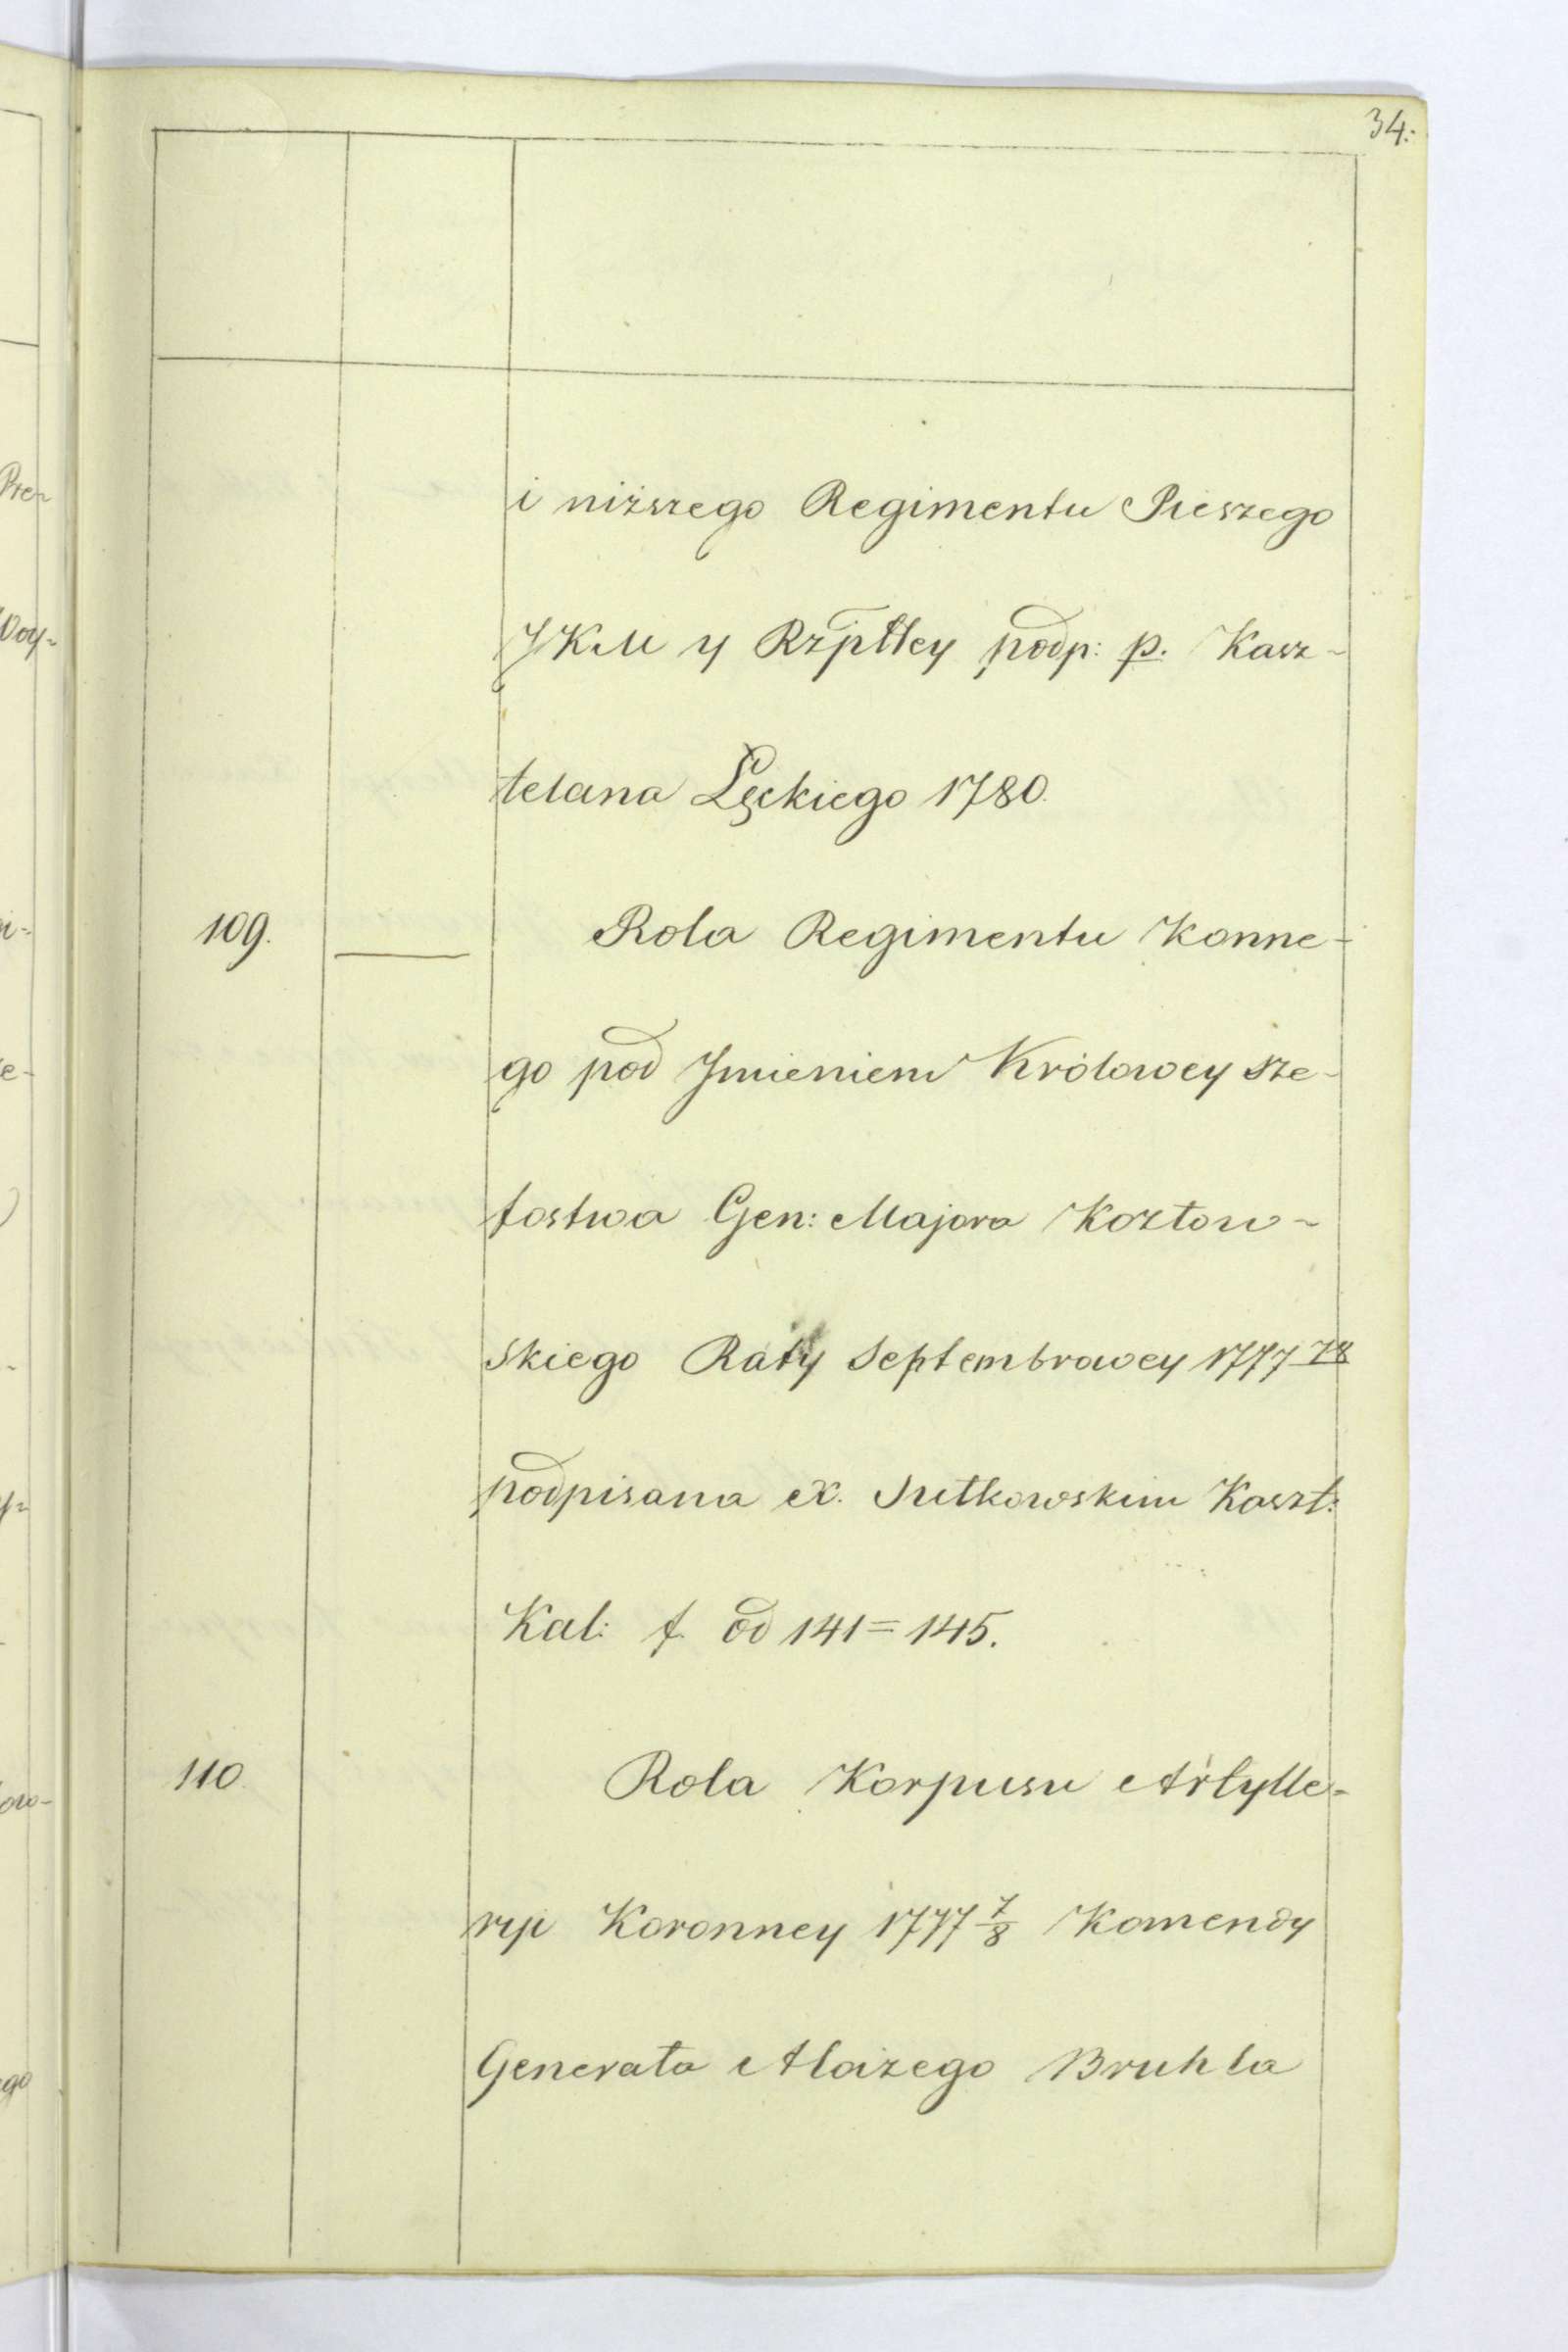 34.
i niższego Regimentu Pieszego
JKM y Rzpltey podp: p. Kasz-
telana Łęckiego 1780.
109. Rola Regimentu Konne-
go pod Jmieniem Królowey sze-
fostwa Gen: Majora Kozłow-
skiego Raty Septembrowey 1777 78
podpisana ex. Sutkowskim Kaszt:
Kal: f. od 141=145.
110. Rola Korpusu Artylle-
ryi Koronney 1777 7/8 Komendy
Generała Aloizego Bruhla